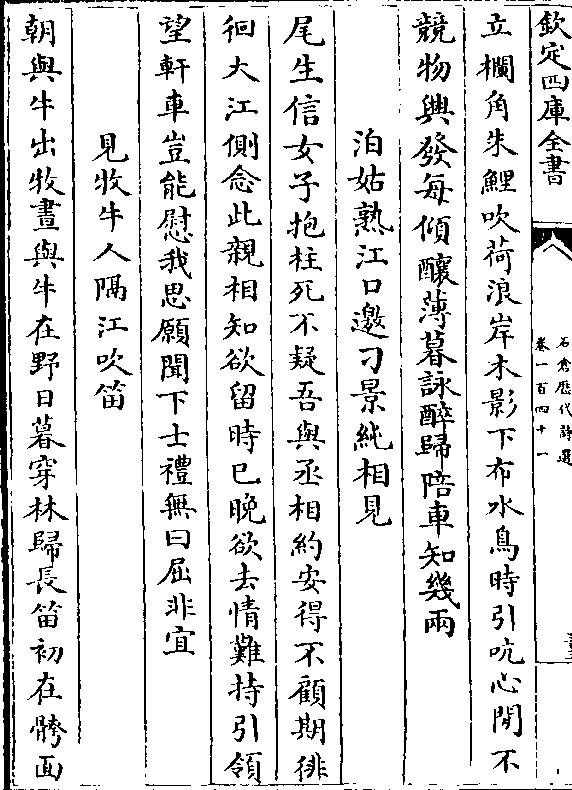 欽定四庫全書
石倉歷代詩選
卷一百四十一
立欄角朱鯉吹荷浪岸木影下布水鳥時引吭心閒不
競物興發每傾釀薄暮詠醉歸陪車知幾兩
泊姑熟江口邀刁景純相見
尾生信女子抱柱死不疑吾與丞相約安得不顧期徘
徊大江側念此親相知欲留時已晚欲去情難持引領
望軒車豈能慰我思願聞下士禮無曰屈非宜
見牧牛人隔江吹笛
朝與牛出牧晝與牛在野日暮穿林歸長笛初在髀面